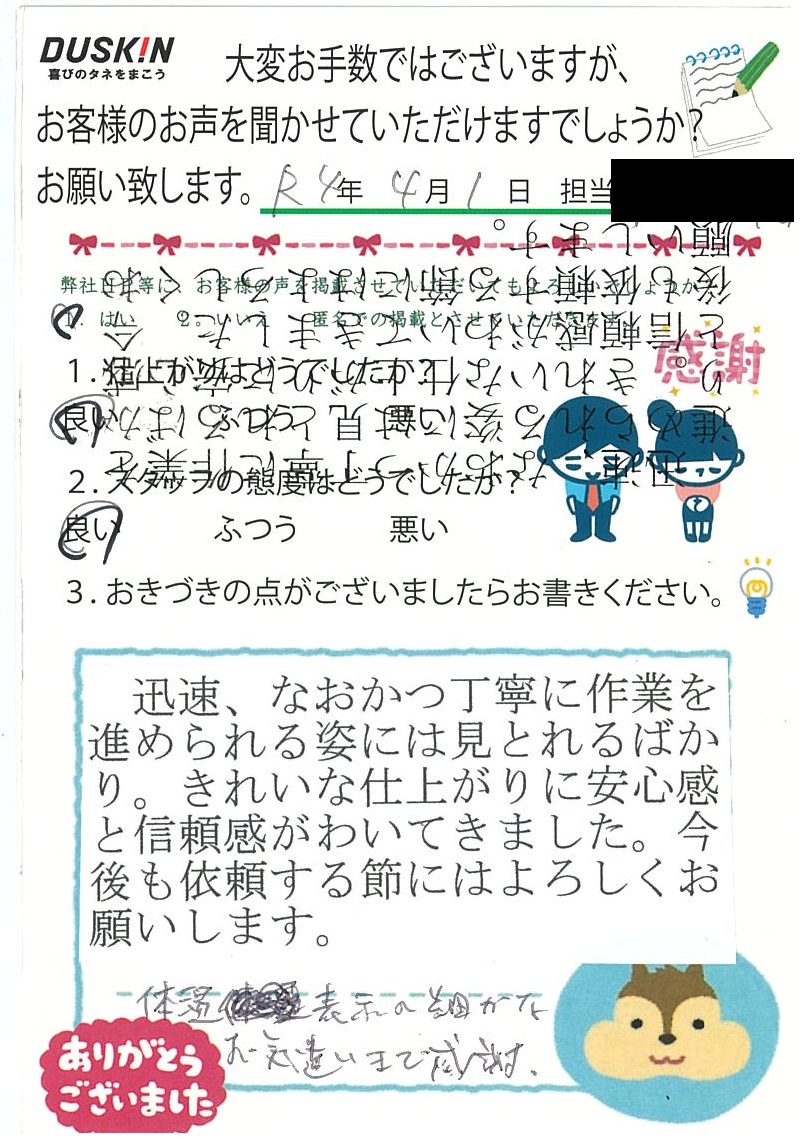 DUSKIN
喜びのタネをまこう
大変お手数ではございますが、
お客様のお声を聞かせていただけますでしょうか?
お願い致します。 R4年 4月 1日 担当
1. はい 2. いいえ 匿名での掲載とさせていただきます
感謝
良い ふつう 悪い
2. スタッフの態度はどうでしたか?
良い ふつう 悪い
3. おきづきの点がございましたらお書きください。
迅速、なおかつ丁寧に作業を
進められる姿には見とれるばか
り。きれいな仕上がりに安心感
と信頼感がわいてきました。今
後も依頼する節にはよろしくお
願いします。
体温表示の細かな
お気遣いまで感謝.
ありがとう
ございました